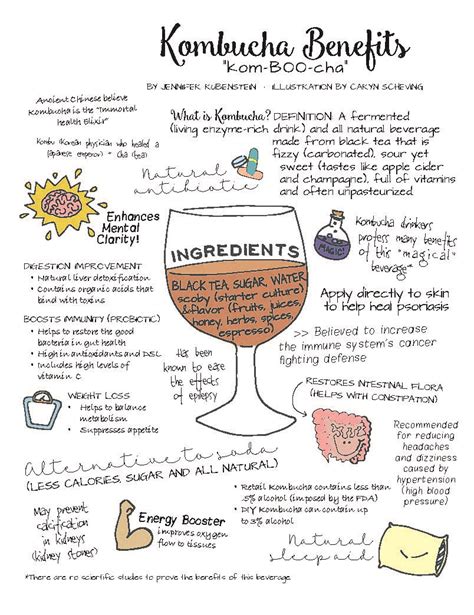 Kombucha Benefits
"Kom-BOO-cha"
BY JENNIFER RUBENSTEIN · ILLUSTRATION BY CARYN SCHEVING
Ancient Chinese believe
Kombucha is the "Immortal
Health Elixir"
Kombu (Korean physician who healed a
Japanese emperor) + Cha (tea)
What is Kombucha? DEFINITION: A fermented
(living enzyme-rich drink) and all natural beverage
made from black tea that is
fizzy (carbonated), sour yet
sweet (tastes like apple cider
and champagne), full of vitamins
and often unpasteurized
Natural
antibiotic
Enhances
Mental
Clarity!
INGREDIENTS
BLACK TEA, SUGAR, WATER
scoby (starter culture)
&flavor (fruits, juices,
honey, herbs, spices,
espresso)
MAGIC!
Kombucha drinkers
profess many benefits
of this "magical"
beverage*
DIGESTION IMPROVEMENT
• Natural liver detoxification
• Contains organic acids that
bind with toxins
Apply directly to skin
to help heal psoriasis
BOOSTS IMMUNITY (PROBIOTIC)
• Helps to restore the good
bacteria in gut health
• High in antioxidants and DSL
• Includes high levels of
vitamin C
>> Believed to increase
the immune system's cancer
fighting defense
Has been
known to ease
the effects
of epilepsy
RESTORES INTESTINAL FLORA
(HELPS WITH CONSTIPATION)
WEIGHT LOSS
• Helps to balance
metabolism
• Suppresses appetite
Recommended
for reducing
headaches
and dizziness
caused by
hypertension
(high blood
pressure)
Alternative to soda
(LESS CALORIES, SUGAR AND ALL NATURAL)
• Retail Kombucha contains less than
.5% alcohol (imposed by the FDA)
• DIY Kombucha can contain up
to 3% alcohol
May prevent
calcification
in kidneys
(kidney stones)
Energy Booster
improves oxygen
flow to tissues
Natural
sleep aid
*There are no scientific studes to prove the benefits of this beverage.